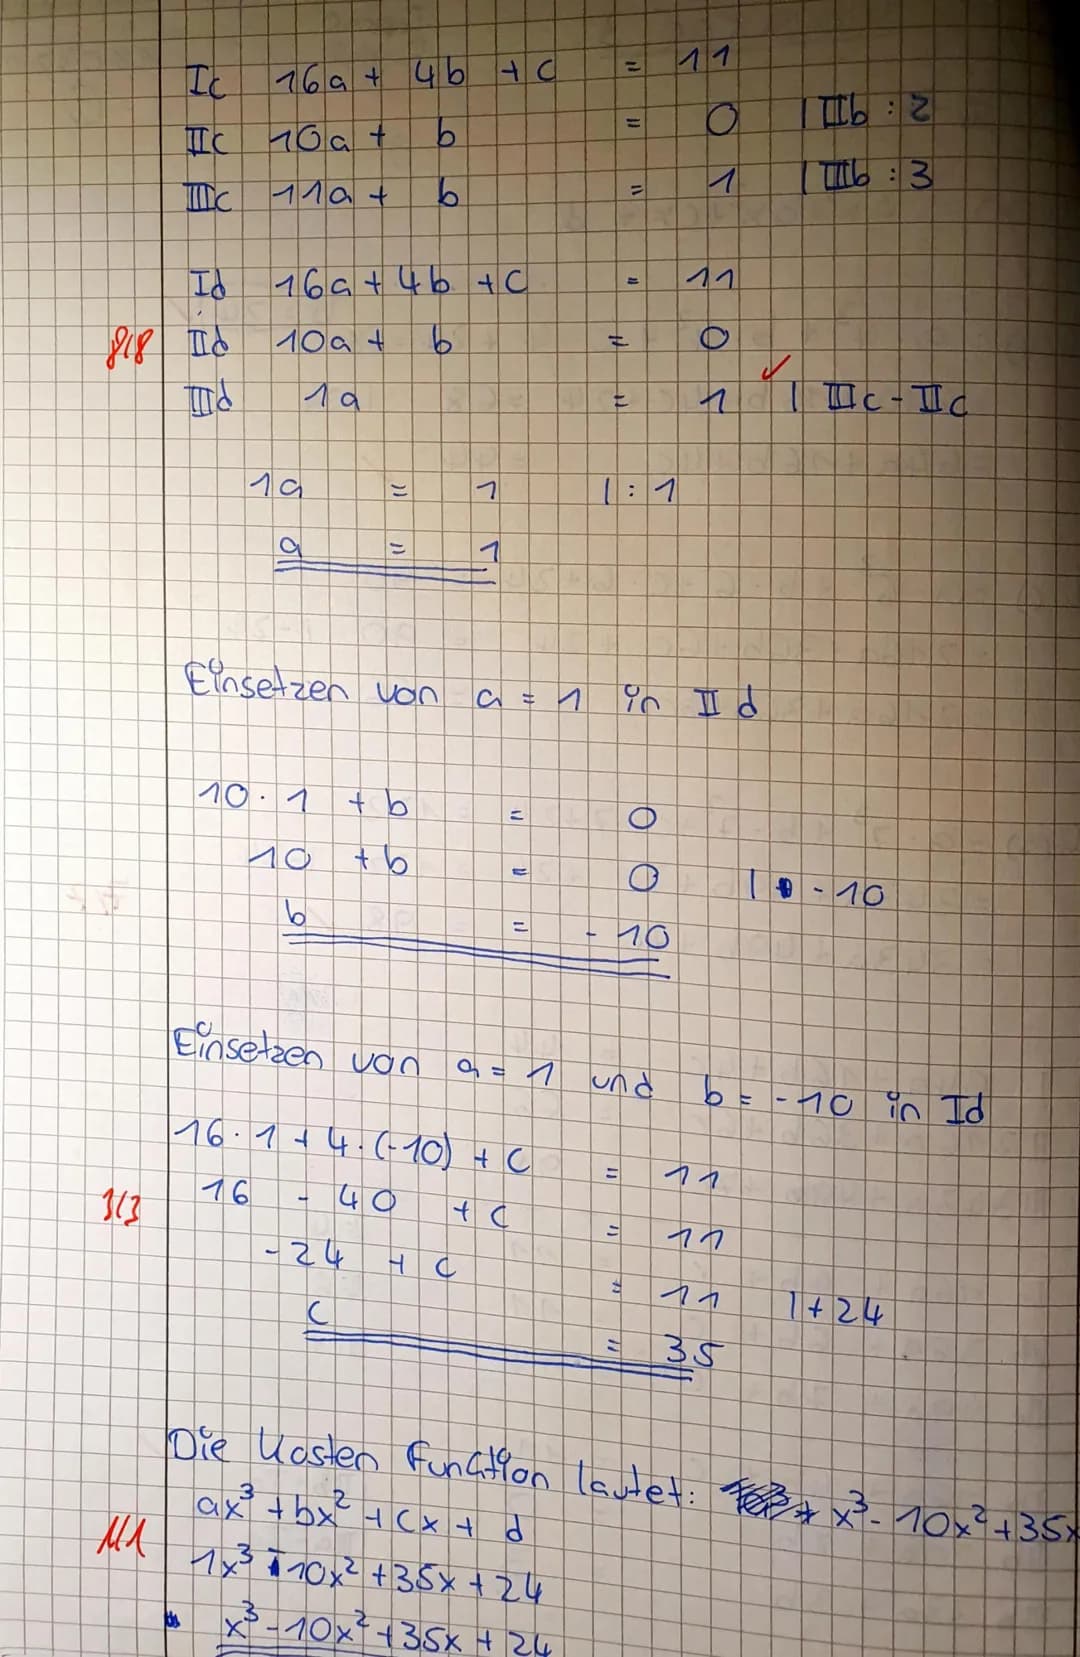 Ic 16a + 4b + c = 11
IIc 10a + b = 0 | IIb : 2
IIIc 11a + b = 1 | IIIb : 3
Id 16a + 4b + c = 11
8/8 IId 10a + b = 0
IIId 1a = 1 ✓ | IIIc - IIc
1a = 1 | : 1
a = 1
Einsetzen von a = 1 in II d
10 · 1 + b = 0
10 + b = 0 | - 10
b = - 10
Einsetzen von a = 1 und b = -10 in Id
16 · 1 + 4 · (-10) + c = 11
3/3 16 - 40 + c = 11
-24 + c = 11 | + 24
c = 35
Die Kosten Funktion lautet: x³ - 10x² + 35x
ax³ + bx² + cx + d
1/1 1x³ - 10x² + 35x + 24
x³ - 10x² + 35x + 24